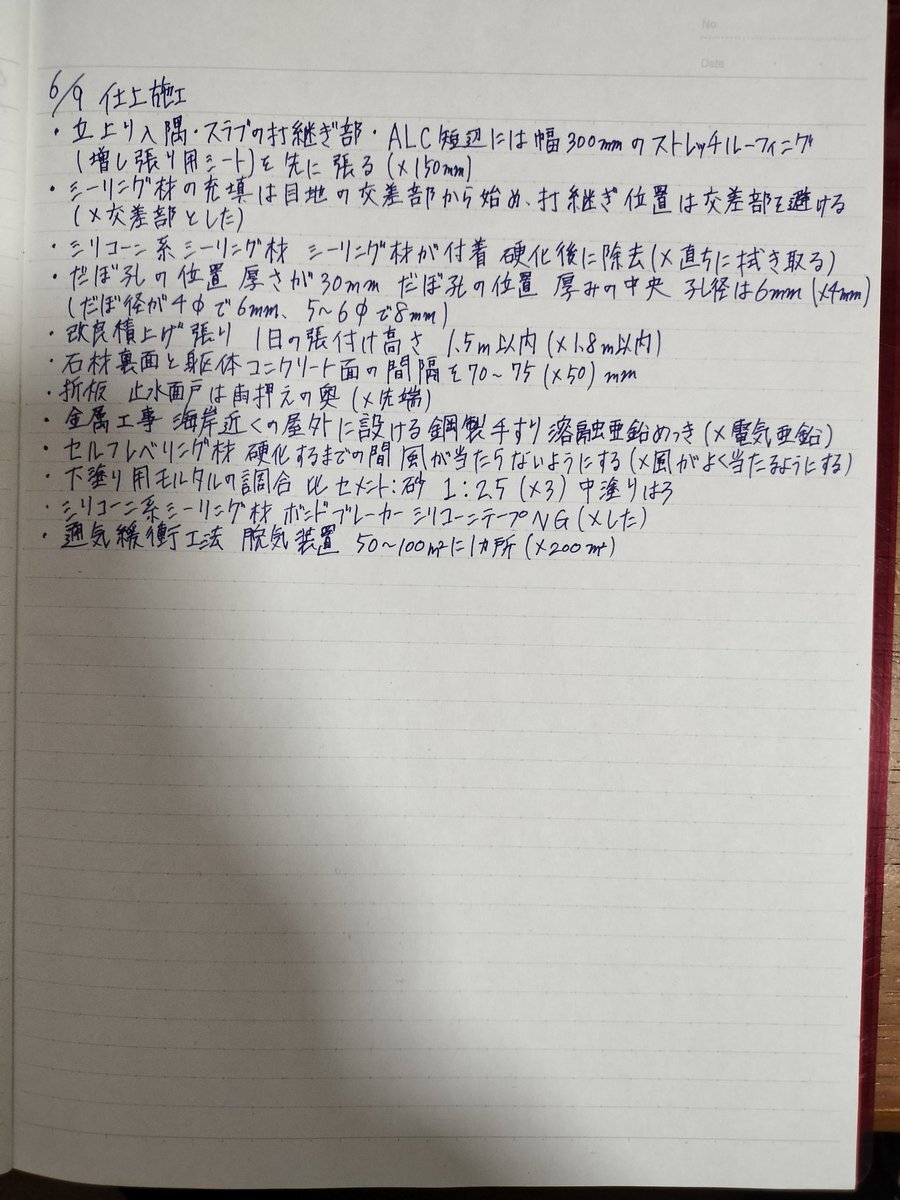 No.
Date
6/9 仕上施工
・立上り入隅・スラブの打継ぎ部・ALC短辺には幅300mmのストレッチルーフィング
(増し張り用シート)を先に張る(×150mm)
・シーリング材の充填は目地の交差部から始め、打継ぎ位置は交差部を避ける
(×交差部とした)
・シリコーン系シーリング材 シーリング材が付着 硬化後に除去(×直ちに拭き取る)
・だぼ孔の位置 厚さが30mm だぼ孔の位置 厚みの中央 孔径は6mm(×4mm)
(だぼ径が4φで6mm、5~6φで8mm)
・改良積上げ張り 1日の張付け高さ 1.5m以内(×1.8m以内)
・石材裏面と躯体コンクリート面の間隔を70~75(×50)mm
・折板 止水面戸は雨押えの奥(×先端)
・金属工事 海岸近くの屋外に設ける鋼製手すり 溶融亜鉛めっき(×電気亜鉛)
・セルフレベリング材 硬化するまでの間 風が当たらないようにする(×風がよく当たるようにする)
・下塗り用モルタルの調合 比 セメント:砂 1:2.5(×3)中塗りは3
・シリコーン系シーリング材 ボンドブレーカー シリコーンテープNG(×した)
・通気緩衝工法 脱気装置 50~100㎡に1カ所(×200㎡)